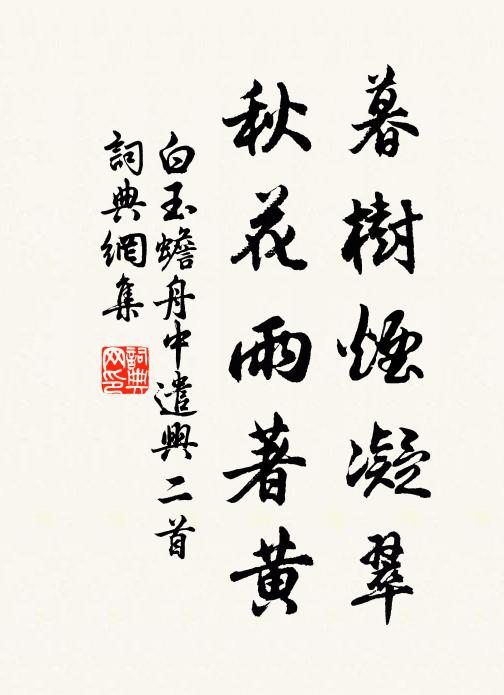 暮樹煙凝翠
秋花雨著黄
白玉蟾舟中遣興二首
詞典網集
詞典網印